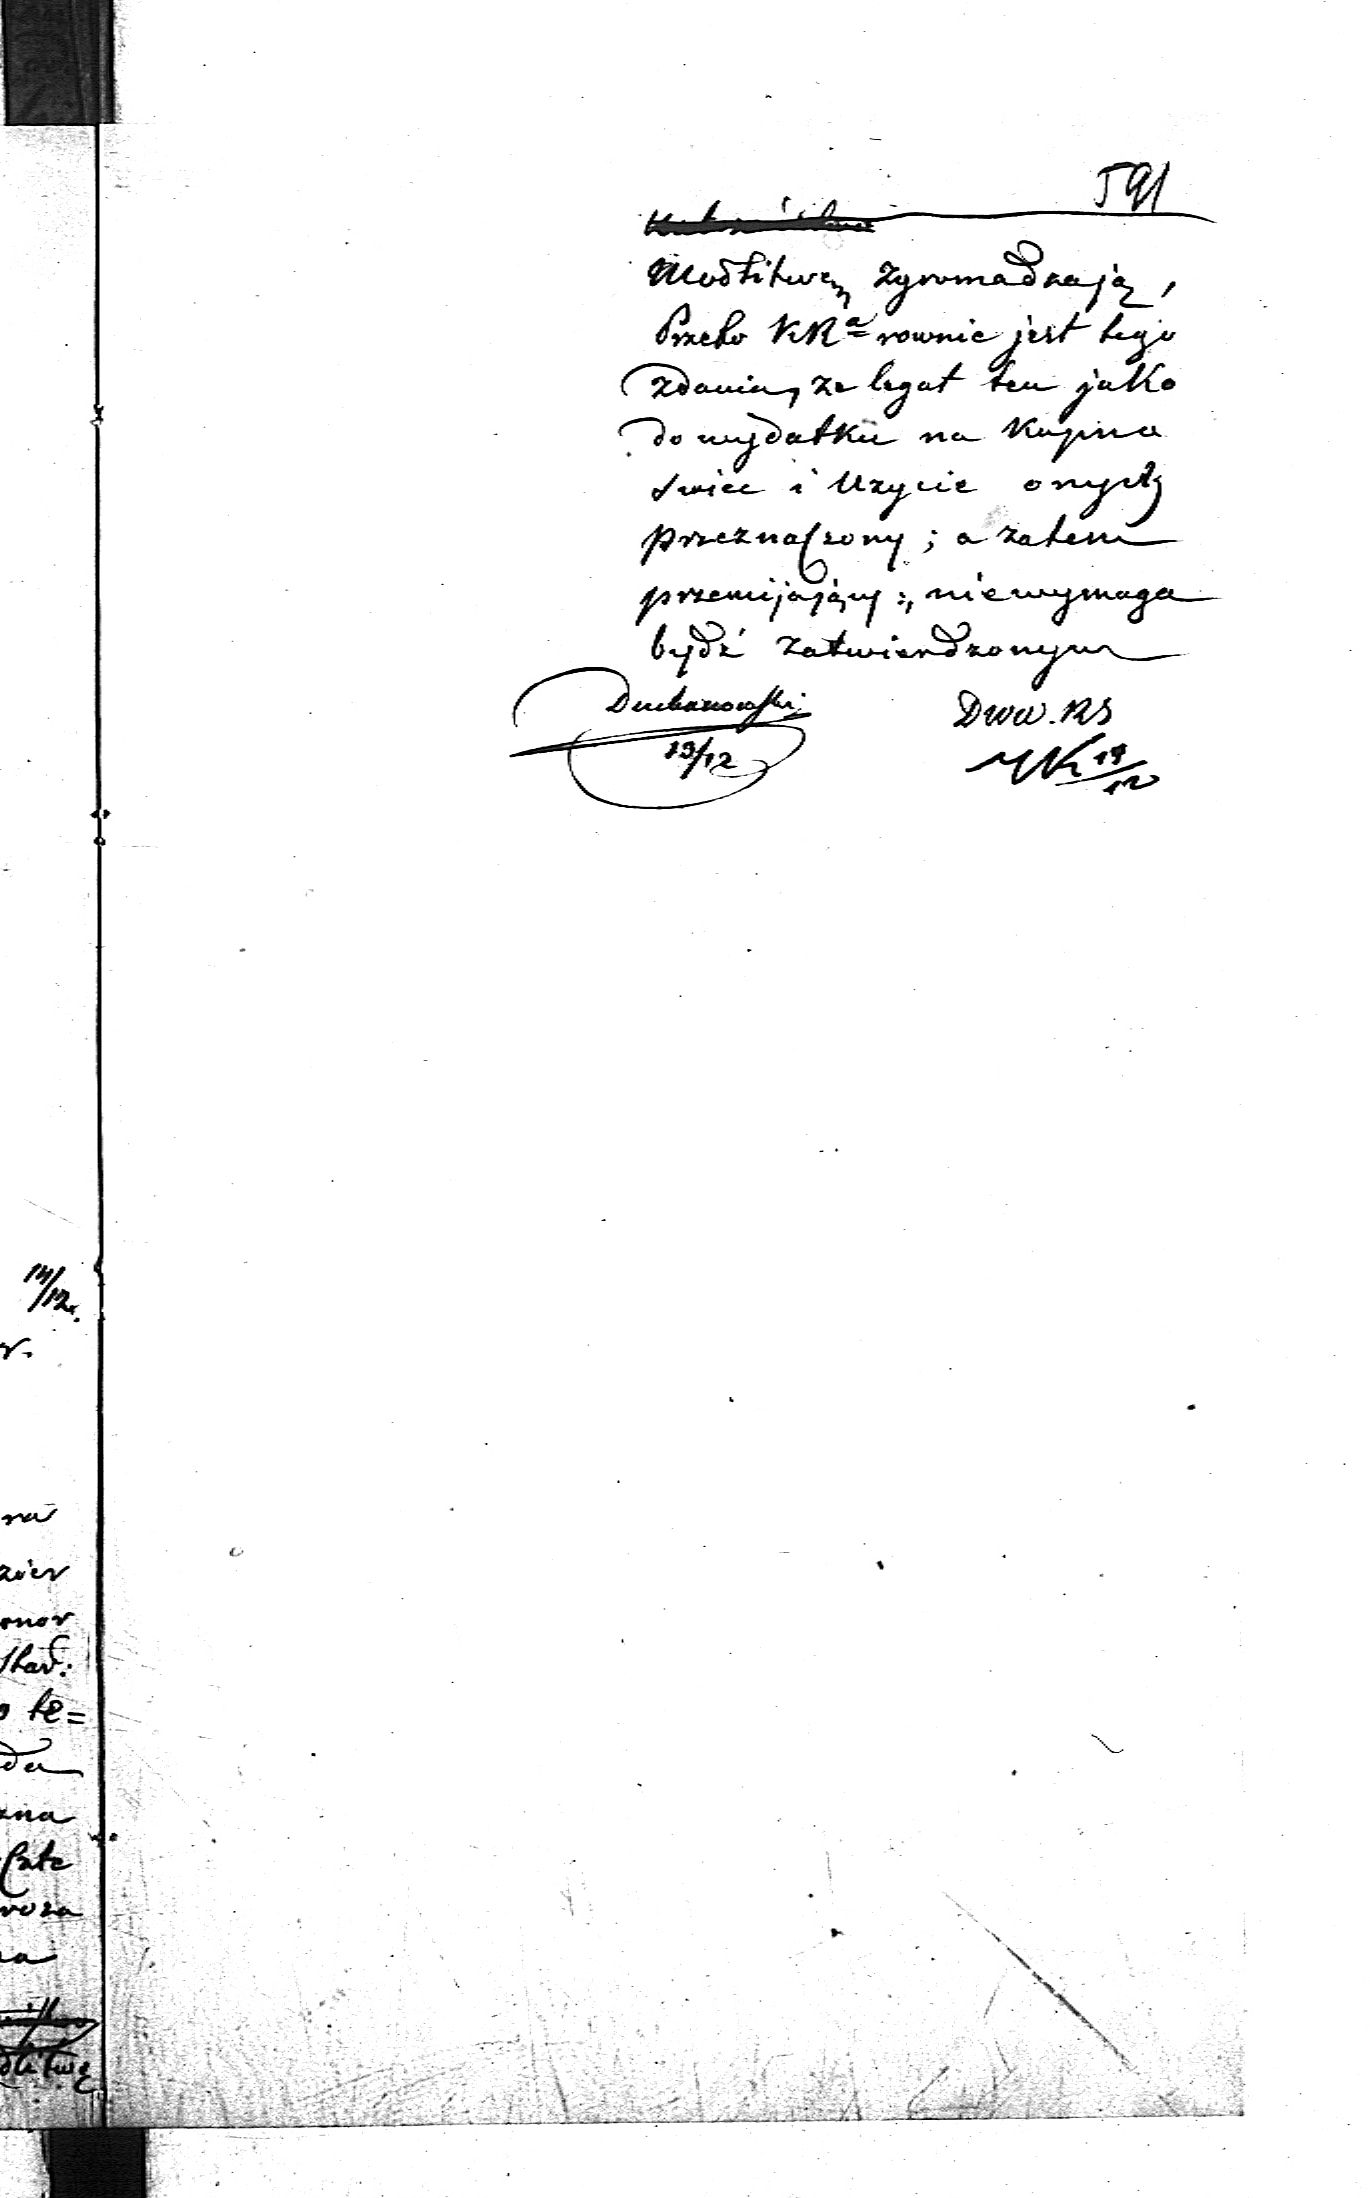 591
Modlitwę zgromadzają,
Przeto KRa rownie jest tego
zdania, ze legat ten jako
do wydatku na Kupno
swiec i Uzycie onych
przeznaczony; a zatem
przemijający, niewymaga
bydź zatwierdzonym
Duchanowski
Dwa. RS
13/12
MK 14/12
14/12.
r.
na
zier
onor
Stad:
te=
da
zna
czte
roza
na
dlitwę